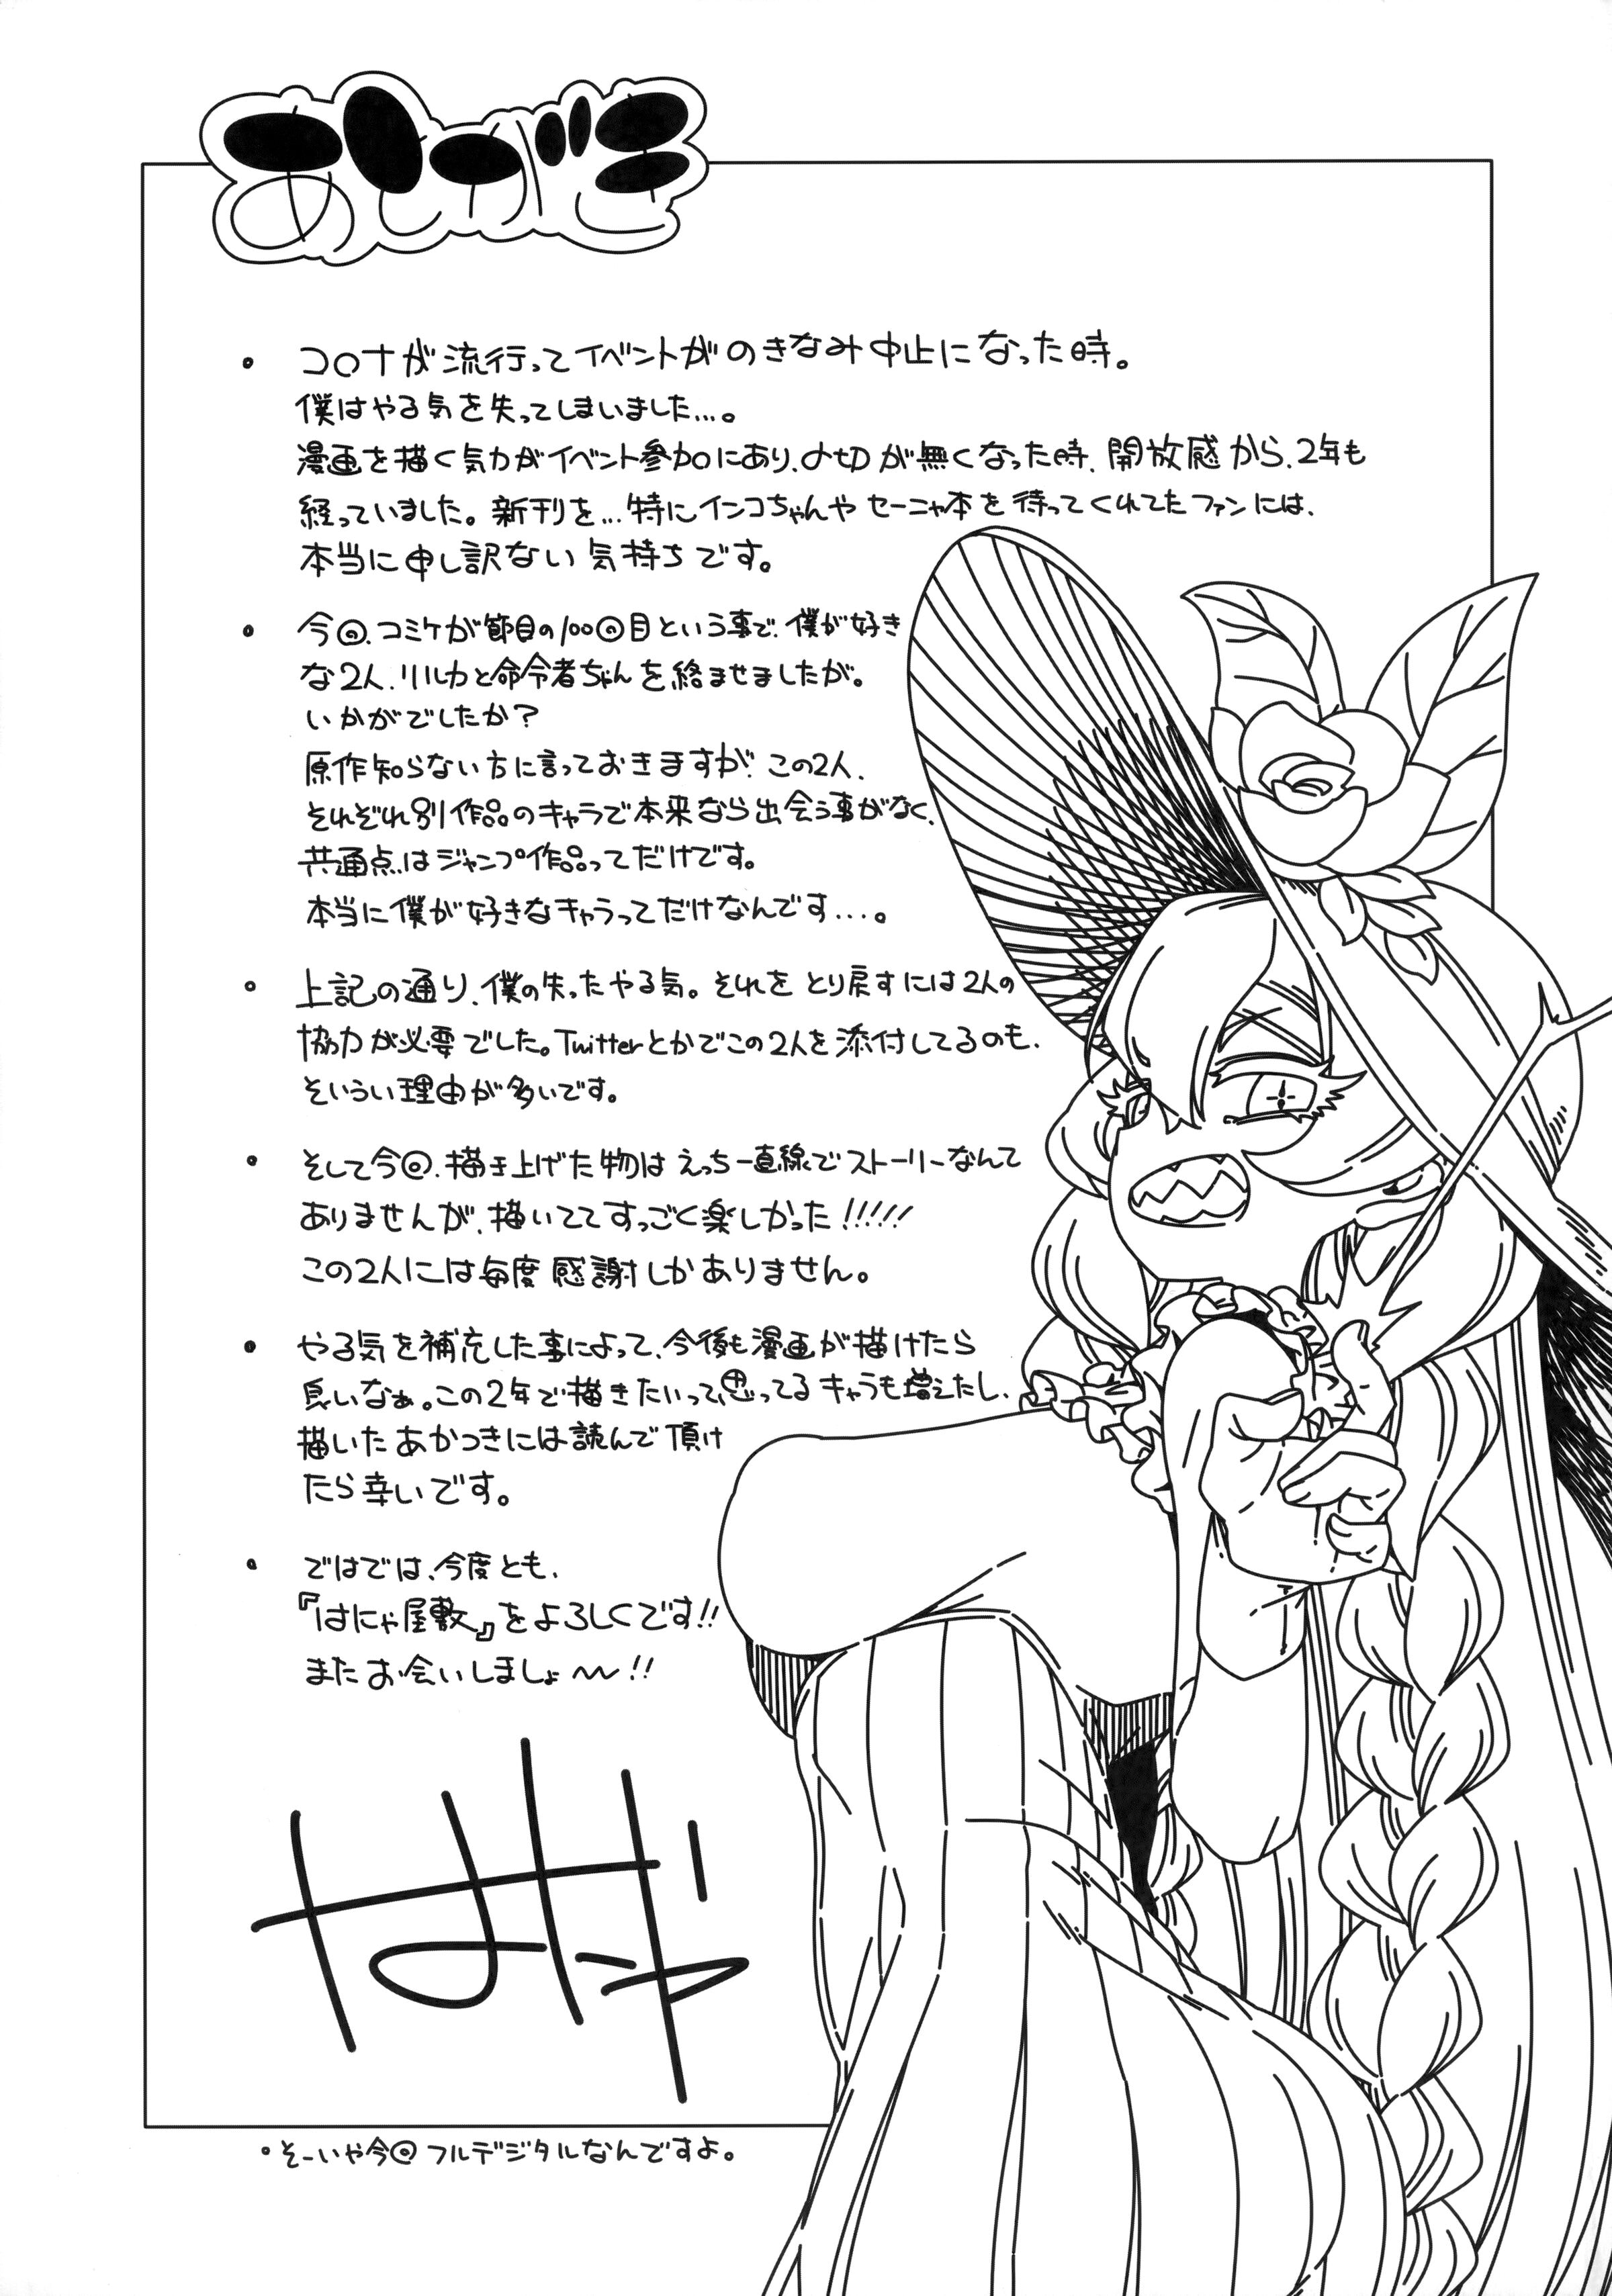 あとがき
・コロナが流行ってイベントがのきなみ中止になった時。
僕はやる気を失ってしまいました…。
漫画を描く気力がイベント参加にあり、〆切が無くなった時、開放感から、2年も
経っていました。新刊を…特にインコちゃんやセーニャ本を待ってくれてたファンには、
本当に申し訳ない気持ちです。
・今回、コミケが節目の100回目という事で、僕が好き
な2人、リルカと命令者ちゃんを絡ませましたが。
いかがでしたか？
原作知らない方に言っておきますが、この2人、
それぞれ別作品のキャラで本来なら出会う事がなく、
共通点はジャンプ作品ってだけです。
本当に僕が好きなキャラってだけなんです…。
・上記の通り、僕の失ったやる気。それをとり戻すには2人の
協力が必要でした。Twitterとかでこの2人を添付してるのも、
そいうい理由が多いです。
・そして今回、描き上げた物はえっち一直線でストーリーなんて
ありませんが、描いててすっごく楽しかった!!!!!
この2人には毎度感謝しかありません。
・やる気を補充した事によって、今後も漫画が描けたら
良いなぁ。この2年で描きたいって思ってるキャラも増えたし、
描いたあかつきには読んで頂け
たら幸いです。
・ではでは、今度とも、
『はにゃ屋敷』をよろしくです!!
またお会いしましょ〜!!
・そーいや今回フルデジタルなんですよ。